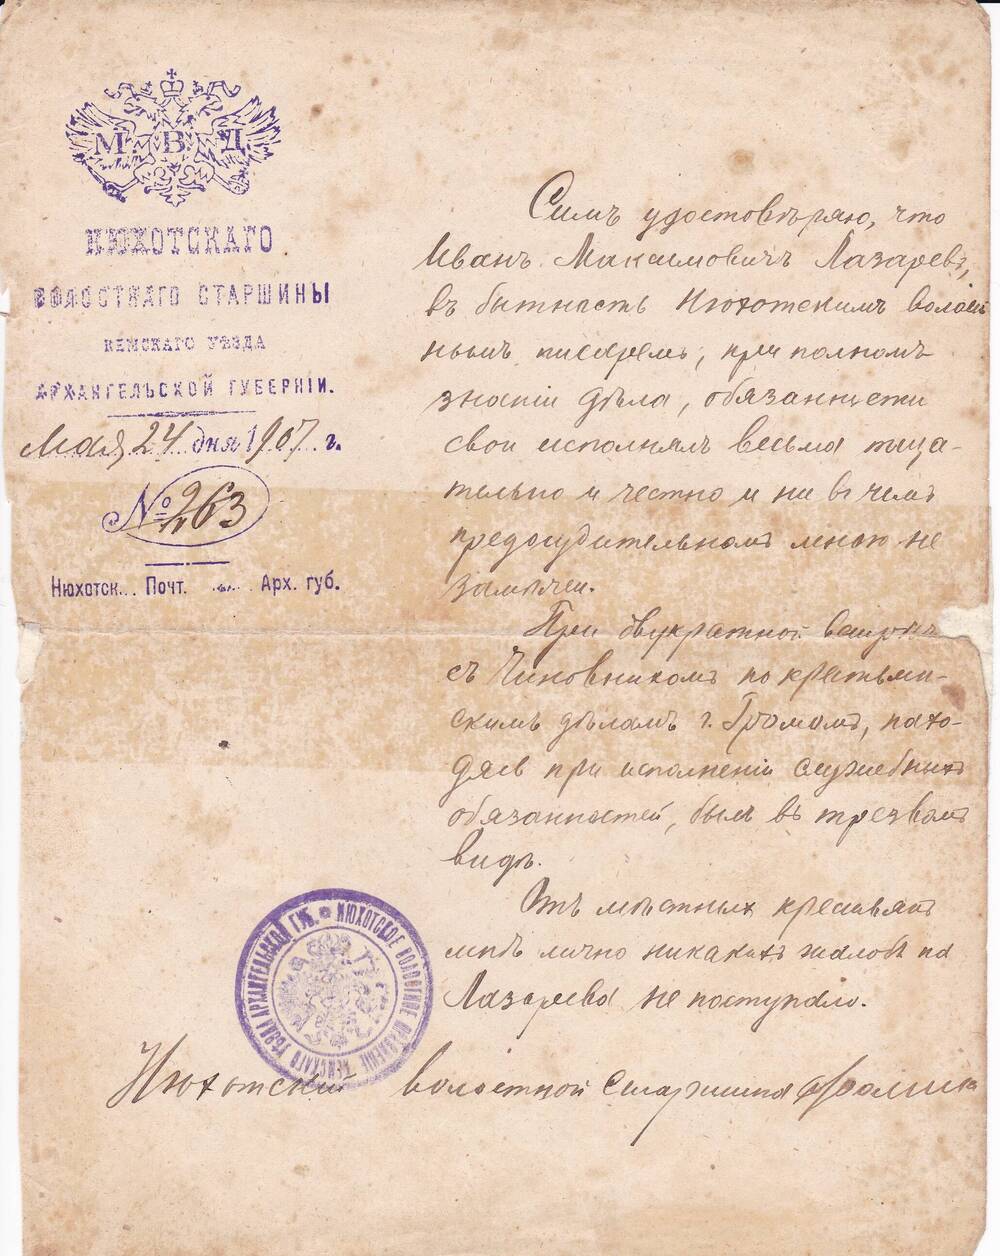 М В Д
НЮХОТСКАГО
ВОЛОСТНАГО СТАРШИНЫ
КЕМСКАГО УѢЗДА
АРХАНГЕЛЬСКОЙ ГУБЕРНІИ.
Мая 24 дня 1907 г.
№ 263
Нюхотск. Почт. Арх. губ.
Симъ удостовѣряю, что
Иванъ Максимовичъ Лазаревъ,
въ бытность Нюхотскимъ волост
нымъ писаремъ, при полномъ
знаніи дѣла, обязанности
свои исполнялъ весьма тща-
тельно и честно и ни въ чемъ
предосудительномъ мною не
замѣчен.
При двукратной
съ Чиновникомъ по крестьян-
скимъ дѣламъ г. Громомъ, нахо-
дясь при исполненіи служебныхъ
обязанностей, былъ въ трезвомъ
видѣ.
Отъ мѣстныхъ крестьянъ
мнѣ лично никакихъ жалобъ на
Лазарева не поступало.
Нюхотский волостной Старшина
НЮХОТСКОЕ ВОЛОСТНОЕ ПРАВЛЕНІЕ КЕМСКАГО УѢЗДА АРХАНГЕЛЬСКОЙ ГУБ.